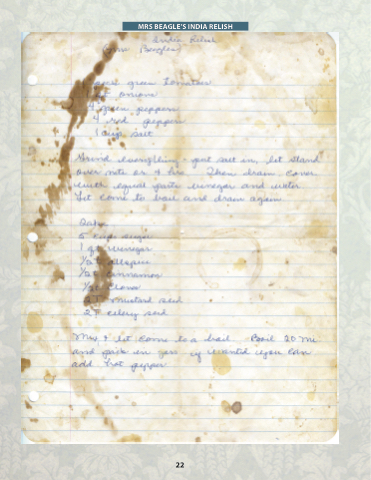 MRS BEAGLE'S INDIA RELISH
India Relish
Beagles
green tomatoes
onions
4 green peppers
4 red peppers
1 cup salt
Grind everything - put salt in, let stand
over nite or 4 hrs. Then drain. Cover
with equal parts vinegar and water
Let come to boil and drain again
5 cups sugar
1 qt vinegar
1/2 allspice
1/2 cinnamon
cloves
mustard seed
2 T celery seed
Mix & let come to a boil. Boil 20 mi
and pack in jars if wanted can
add hot pepper
22